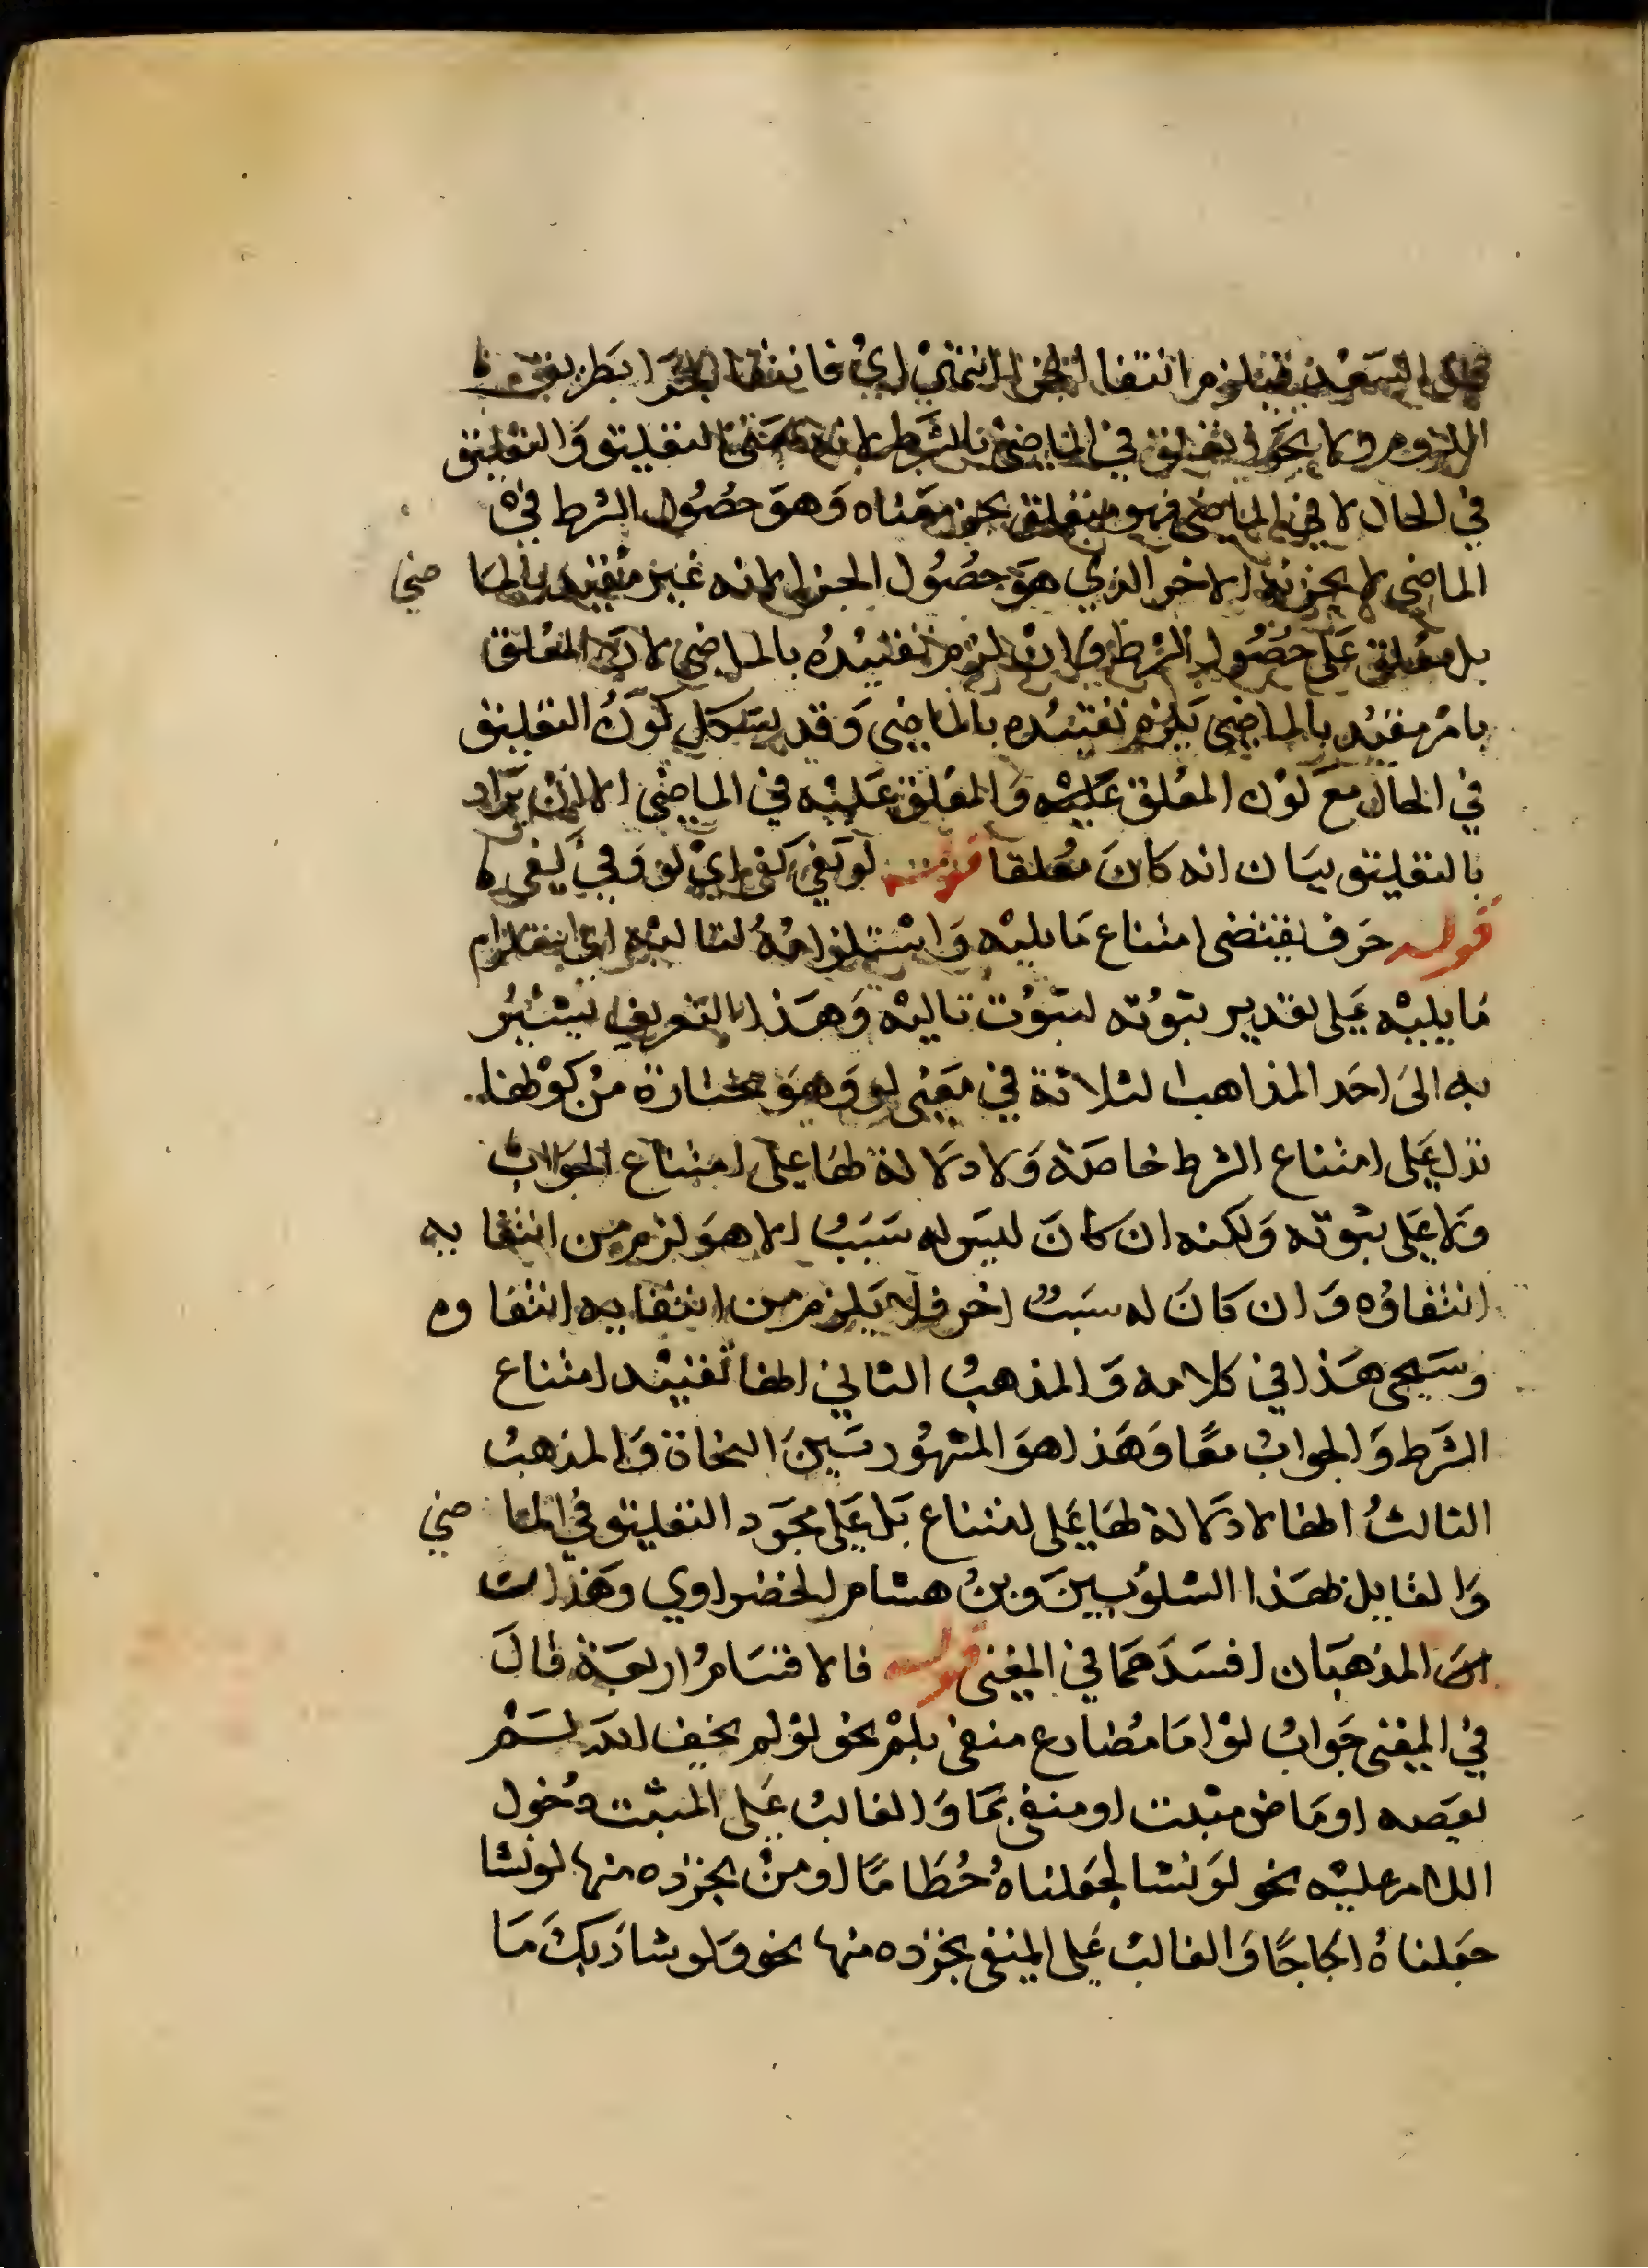 قال السعد فيلزم انتفا الجزا انتهى اي فانتفا الجزا بطريق
اللزوم وما يجو في الماضي بالشرط لانه التعليق والتعليق
في الحال لا في الماضي فهو متعلق بجز معناه وهو حصول الشرط في
الماضي لا بجزئه الاخر الذي هو حصول الجزا لانه غير مقيد بالماضي
بل معلق على حصول الشرط وان لزم تقييده بالماضي لان المعلق
بامر مقيد بالماضي يلزم تقييده بالماضي وقد يشكل كون التعليق
في الحال مع كون المعلق عليه والمعلق عليه في الماضي الا ان يراد
بالتعليق بيان انه كان معلقا قوله لو يفي كفى اي لو وفي يفي
قوله حرف يقتضى امتناع ما يليه واستلزامه لتاليه اي استلزام
ما يليه على تقدير ثبوته لثبوت تاليه وهذا التعريف يشير
به الى احد المذاهب الثلاثة في معنى لو وهو مختاره من كونها
تدل على امتناع الشرط خاصة ولا دلالة لها على امتناع الجواب
ولا على ثبوته ولكنه ان كان ليس له سبب الا هو لزم من انتفايه
انتفاؤه وان كان له سبب اخر فلا يلزم من انتفايه انتفاوه
وسيجى هذا في كلامه والمذهب الثاني انها تفييد امتناع
الشرط والجواب معا وهذا هو المشهور بين النحاة والمذهب
الثالث انها لا دلالة لها على امتناع بل على مجرد التعليق في الماضي
والقايل بهذا الشلوبين وبن هشام الخضراوي وهذان
المذهبان افسدهما في المغنى قوله فالاقسام اربعة قال
في المغنى جواب لو اما مضارع منفى بلم نحو لو لم يخف الله لم
يعصه او ماض مثبت او منفى بما والغالب على المثبت دخول
اللام عليه نحو لو نشا لجعلناه حطاما ومن تجرده منها لو نشا
جعلناه اجاجا والغالب على المنفى تجرده منها نحو ولو شا ربك ما